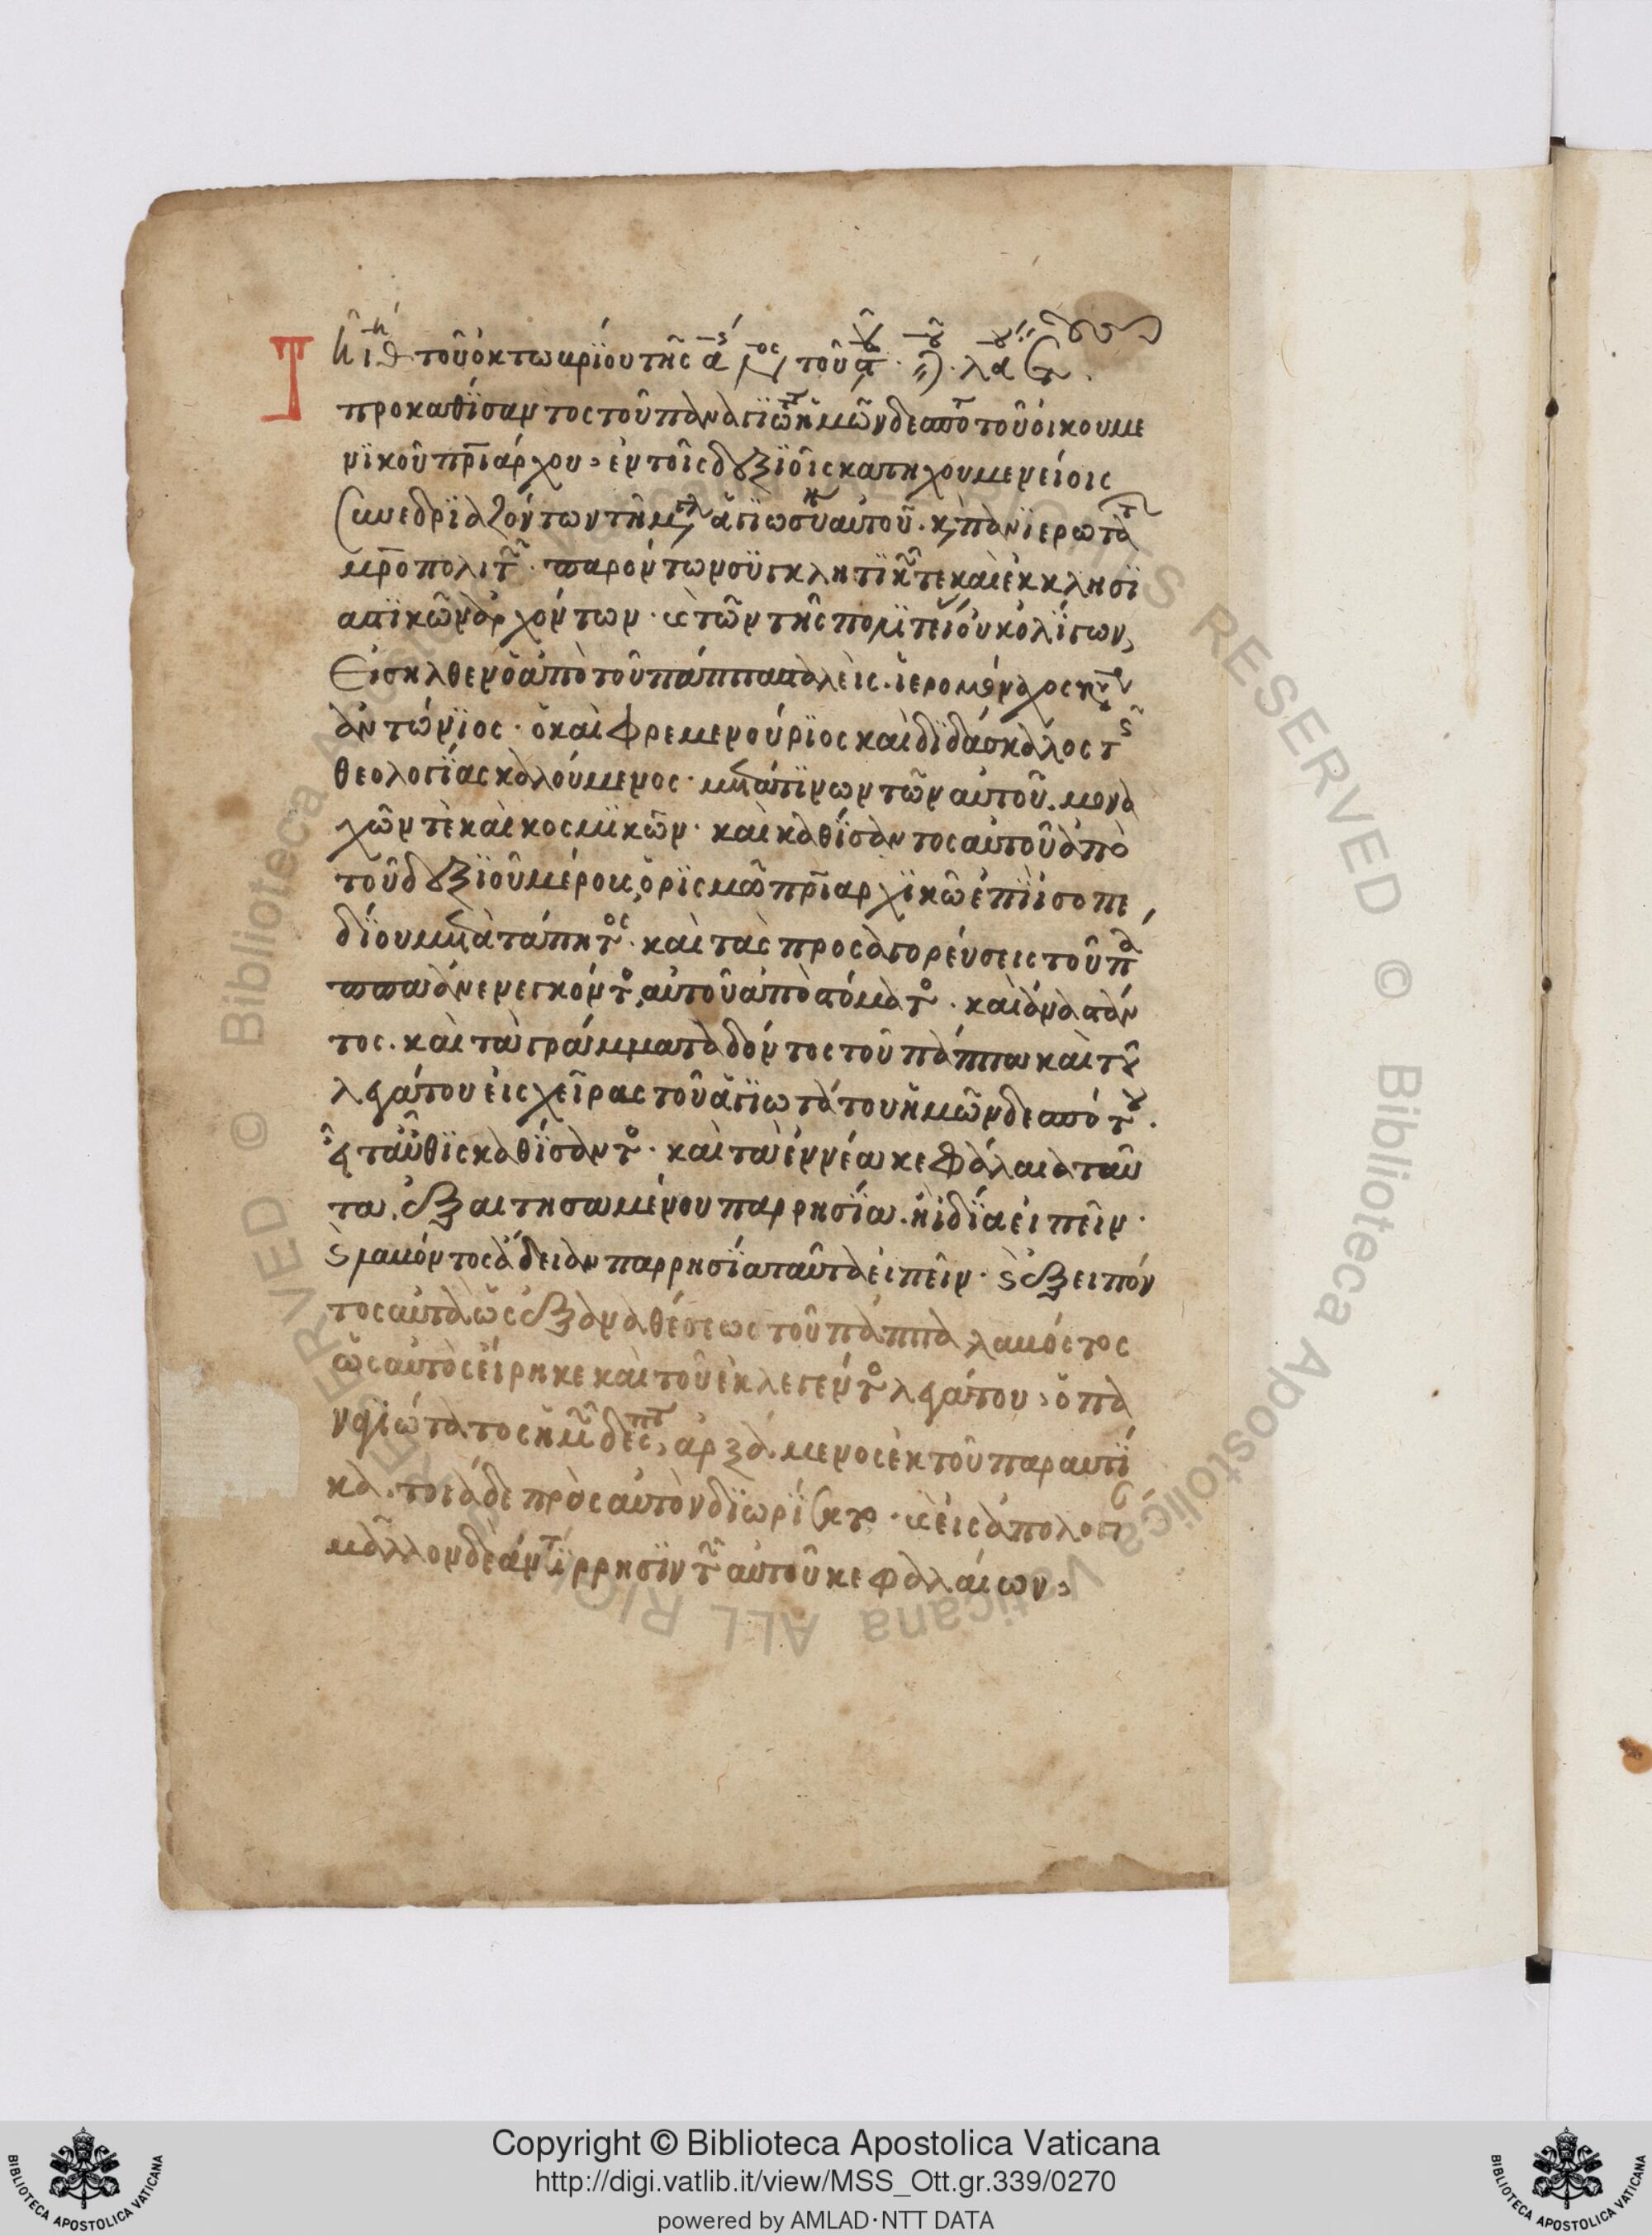 Τῆ ιθ τοῦ ὀκτωβρίου τῆς
προκαθίσαντος τοῦ παναγιωτ ἡμῶν δεσποτ τοῦ οἰκουμε
νϊκοῦ πριάρχου, ἐν τοῖς δεξϊοῖς κατηχουμενείοις
συνεδρϊαζόντων τῆ μεγ ἁγιωσύν αὐτοῦ. κ πανϊερωτά
μροπολιτ. παρόντων συγκλητϊκ τε καὶ ἐκκλησϊ
αστϊκῶν ἀρχόντων. κ τῶν τῆς πολϊτεί οὐκ ὀλίγων,
Εἰσῆλθεν ὁ ἀπὸ τοῦ πάππα σταλεὶς. ἱερομόναχος
ἀντώνϊος. ὁ καὶ φρεμενούριος καὶ διδάσκαλος τ
θεολογίας καλούμενος. μετά τϊνων τῶν αὐτοῦ. μονα
χῶν τὲ καὶ κοσμϊκῶν. καὶ καθίσαντος αὐτοῦ ἀπὸ
τοῦ δεξϊοῦ μέρους, ὁρϊσμῶ πριαρχϊκῶ ἐπϊ ἰσοπε
δίου μετὰ τάπητος. καὶ τὰς προσαγορεύσεις τοῦ πά
ππα ἀνενεγκόντ, αὐτοῦ ἀπὸ στόματ. καὶ ἀναστάν
τος. καὶ τὰ γράμματα δόντος τοῦ πάππα καὶ τοῦ
λεγάτου εἰς χεῖρας τοῦ ἁγϊωτάτου ἡμῶν δεσπότου.
εἶτ αὖθϊς καθίσαντ. καὶ τὰ ἐννέα κεφάλαια ταῦ
τα, ἐξαιτησαμένου παρρησία. ἢ ἰδία εἰπεῖν.
κ λαβόντος ἄδειαν παρρησία ταῦτα εἰπεῖν. κ ἐξειπόν
τος αὐτὰ ὡς ἐξ ἀναθέσεως τοῦ πάππα λαβόντος
ὡς αὐτὸς εἴρηκε καὶ τοῦ ἐκλεγέντ λεγάτου, ὁ πα
ναγϊώτατος ἡμ δεσπτ, ἀρξάμενος ἐκ τοῦ παραυτϊ
κα. τοιάδε πρὸς αὐτὸν διωρίσατο. κ εἰς ἀπολογ
μᾶλλον δὲ ἀντϊρρησϊν τ αὐτοῦ κεφαλαίων,
Copyright © Biblioteca Apostolica Vaticana
http://digi.vatlib.it/view/MSS_Ott.gr.339/0270
powered by AMLAD·NTT DATA
BIBLIOTECA APOSTOLICA VATICANA
BIBLIOTECA APOSTOLICA VATICANA